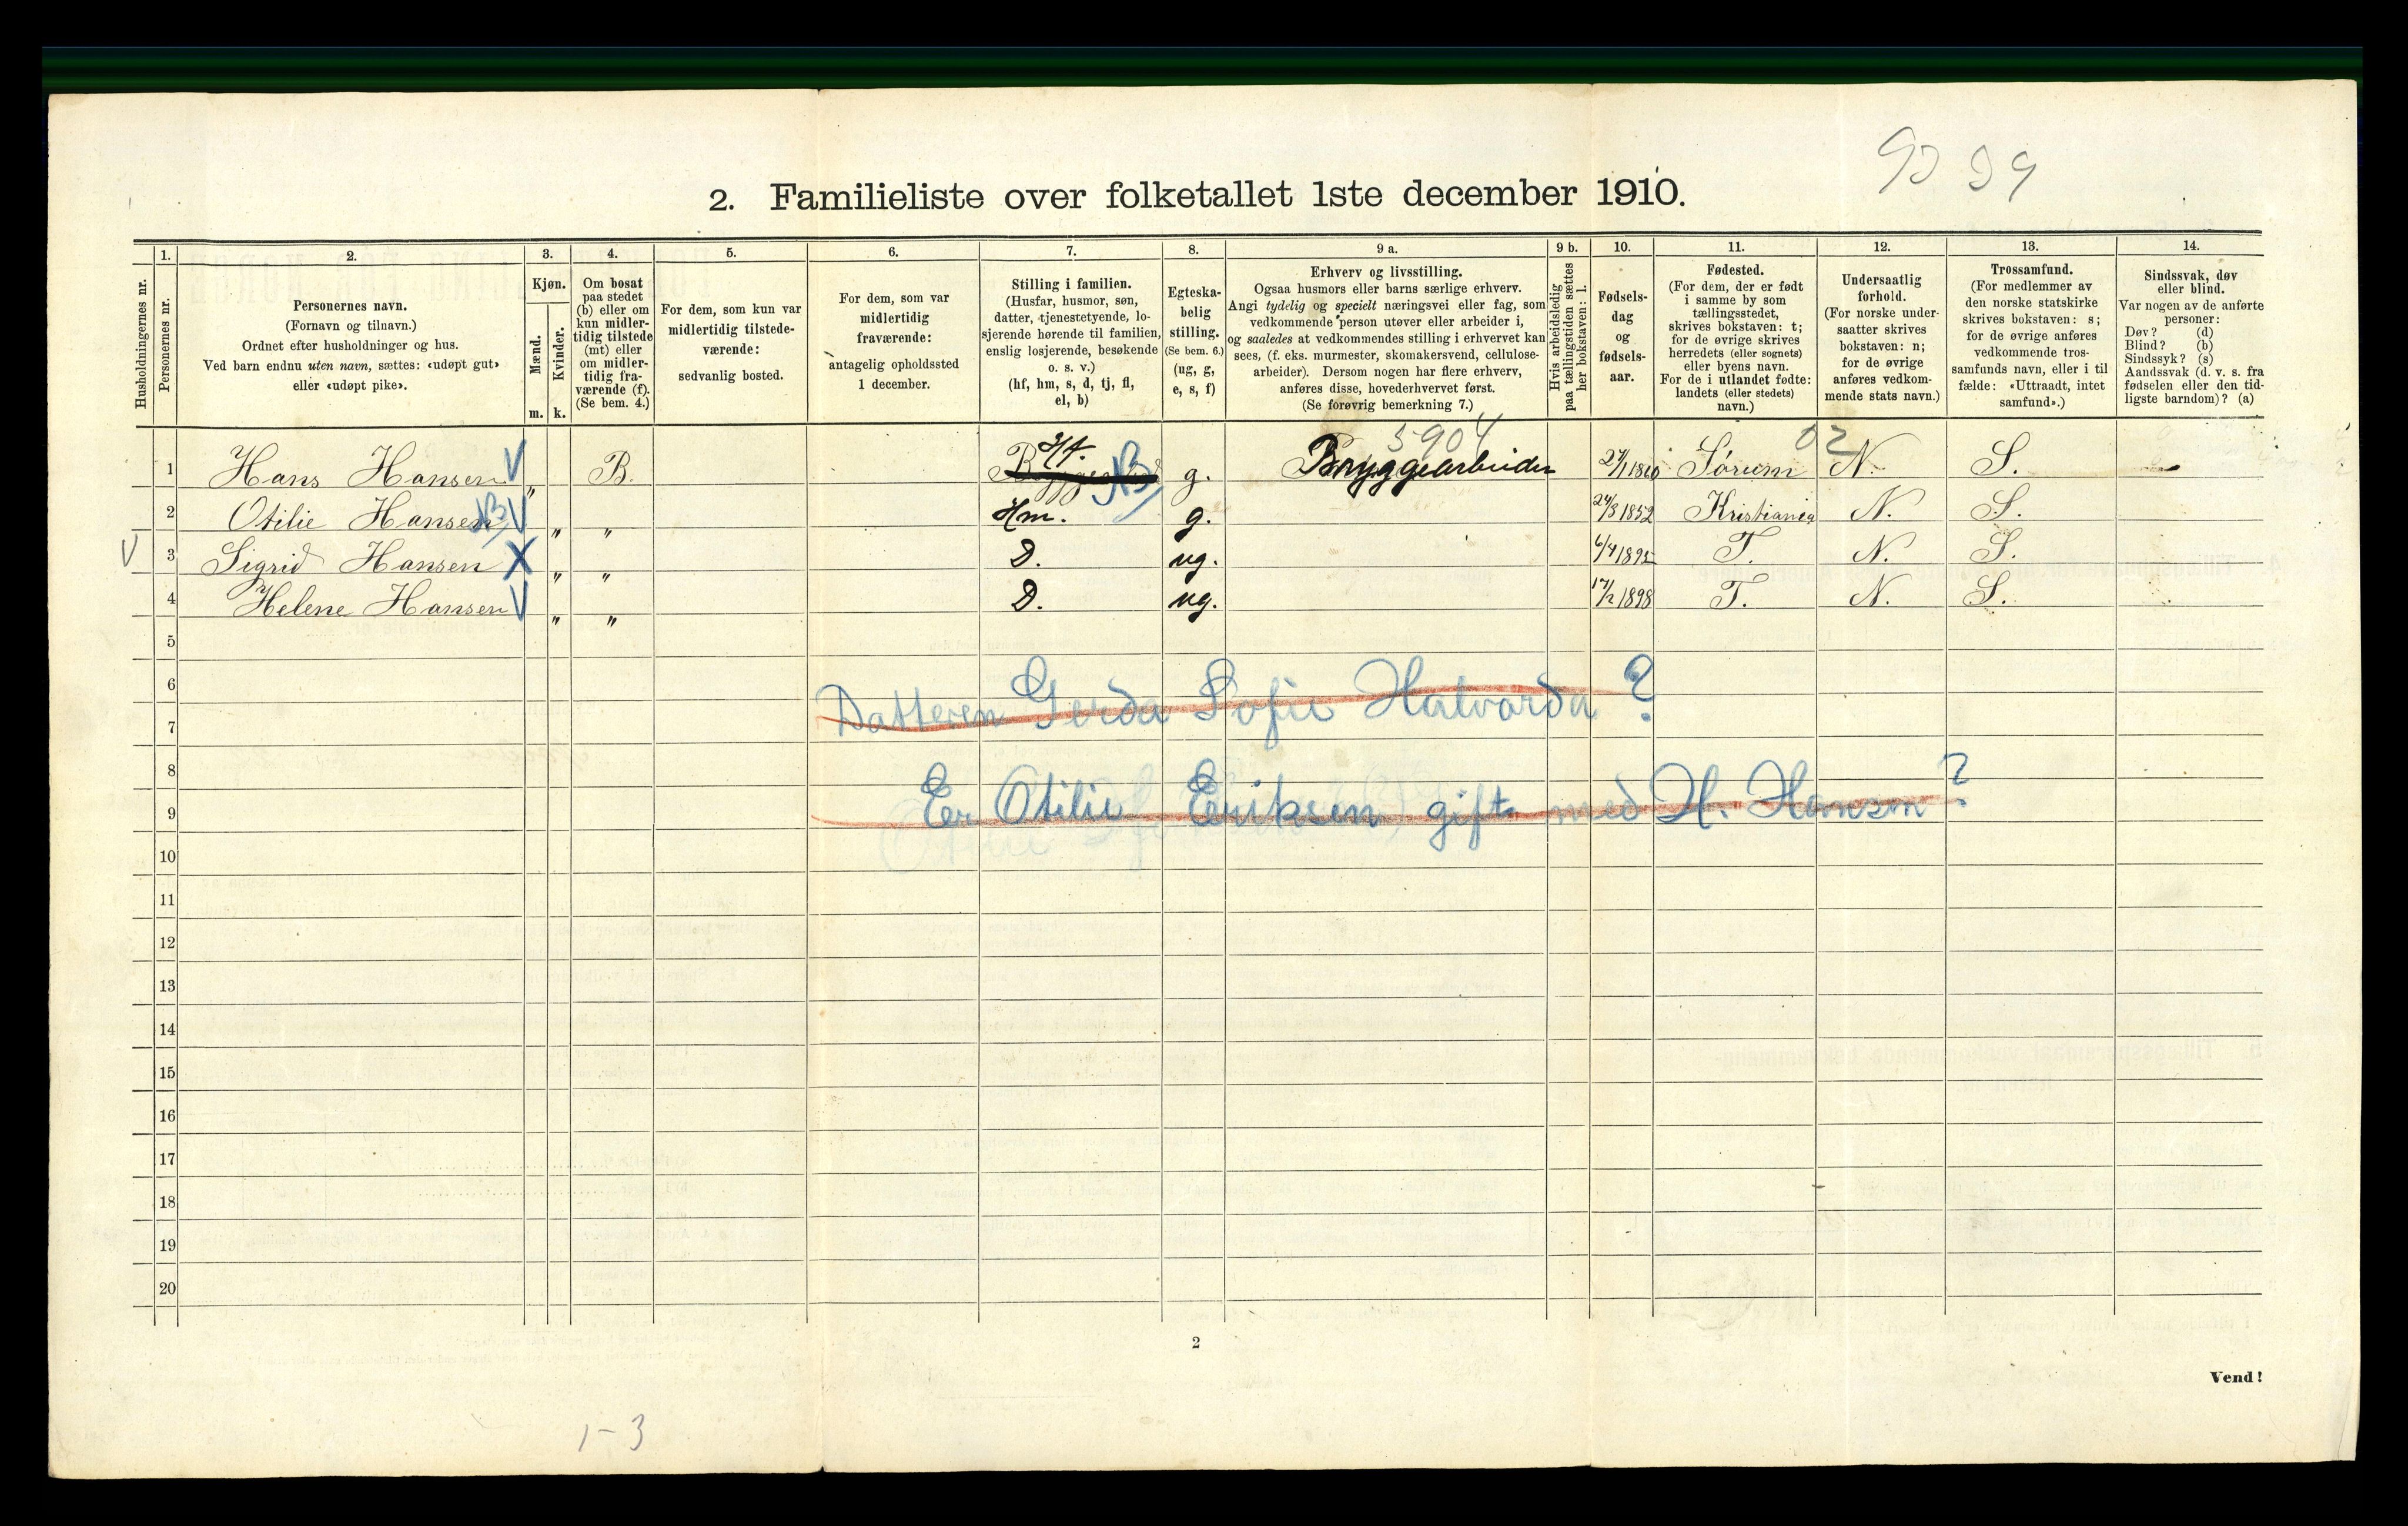 9
2. Familieliste over folketallet 1ste december 1910.
1. 2. 3. 4. 5. 6. 7. 8. 9 a. 9 b. 10. 11. 12. 13. 14.
Husholdningernes nr.
Personernes nr.
Personernes navn.
(Fornavn og tilnavn.)
Ordnet efter husholdninger og hus.
Ved barn endnu uten navn, sættes: «udøpt gut»
eller «udøpt pike».
Kjøn.
Mænd.
Kvinder.
m. k.
Om bosat
paa stedet
(b) eller om
kun midler-
tidig tilstede
(mt) eller
om midler-
tidig fra-
værende (f).
(Se bem. 4.)
For dem, som kun var
midlertidig tilstede-
værende:
sedvanlig bosted.
For dem, som var
midlertidig
fraværende:
antagelig opholdssted
1 december.
Stilling i familien.
(Husfar, husmor, søn,
datter, tjenestetyende, lo-
sjerende hørende til familien,
enslig losjerende, besøkende
o. s. v.)
(hf, hm, s, d, tj, fl,
el, b)
Egteska-
belig
stilling.
(Se bem. 6.)
(ug, g,
e, s, f)
Erhverv og livsstilling.
Ogsaa husmors eller barns særlige erhverv.
Angi tydelig og specielt næringsvei eller fag, som
vedkommende person utøver eller arbeider i,
og saaledes at vedkommendes stilling i erhvervet kan
sees, (f. eks. murmester, skomakersvend, cellulose-
arbeider). Dersom nogen har flere erhverv,
anføres disse, hovederhvervet først.
(Se forøvrig bemerkning 7.)
Hvis arbeidsledig
paa tællingstiden sættes
her bokstaven: l.
Fødsels-
dag
og
fødsels-
aar.
Fødested.
(For dem, der er født
i samme by som
tællingsstedet,
skrives bokstaven: t;
for de øvrige skrives
herredets (eller sognets)
eller byens navn.
For de i utlandet fødte:
landets (eller stedets)
navn.)
Undersaatlig
forhold.
(For norske under-
saatter skrives
bokstaven: n;
for de øvrige
anføres vedkom-
mende stats navn.)
Trossamfund.
(For medlemmer av
den norske statskirke
skrives bokstaven: s;
for de øvrige anføres
vedkommende tros-
samfunds navn, eller i til
fælde: «Uttraadt, intet
samfund».)
Sindssvak, døv
eller blind.
Var nogen av de anførte
personer:
Døv? (d)
Blind? (b)
Sindssyk? (s)
Aandssvak (d. v. s. fra
fødselen eller den tid-
ligste barndom)? (a)
5904 02
1 Hans Hansen V " B. Hf. NB g. Bryggearbeider 27/1 1860 Sørum N. S. -
2 Otilie Hansen NB V " " Hm. g. 24/8 1852 Kristiania N. S.
V 3 Sigrid Hansen X " " D. ug. 6/4 1895 T. N. S.
4 Helene Hansen V " " D. ug. 17/2 1898 T. N. S.
5
6
Datteren Gerda Sofie Halvarda ?
7
8
9 Er Otilie Eriksen gift med H. Hansen ?
10
11
12
13
14
15
16
17
18
19
20
2
Vend!
1-3